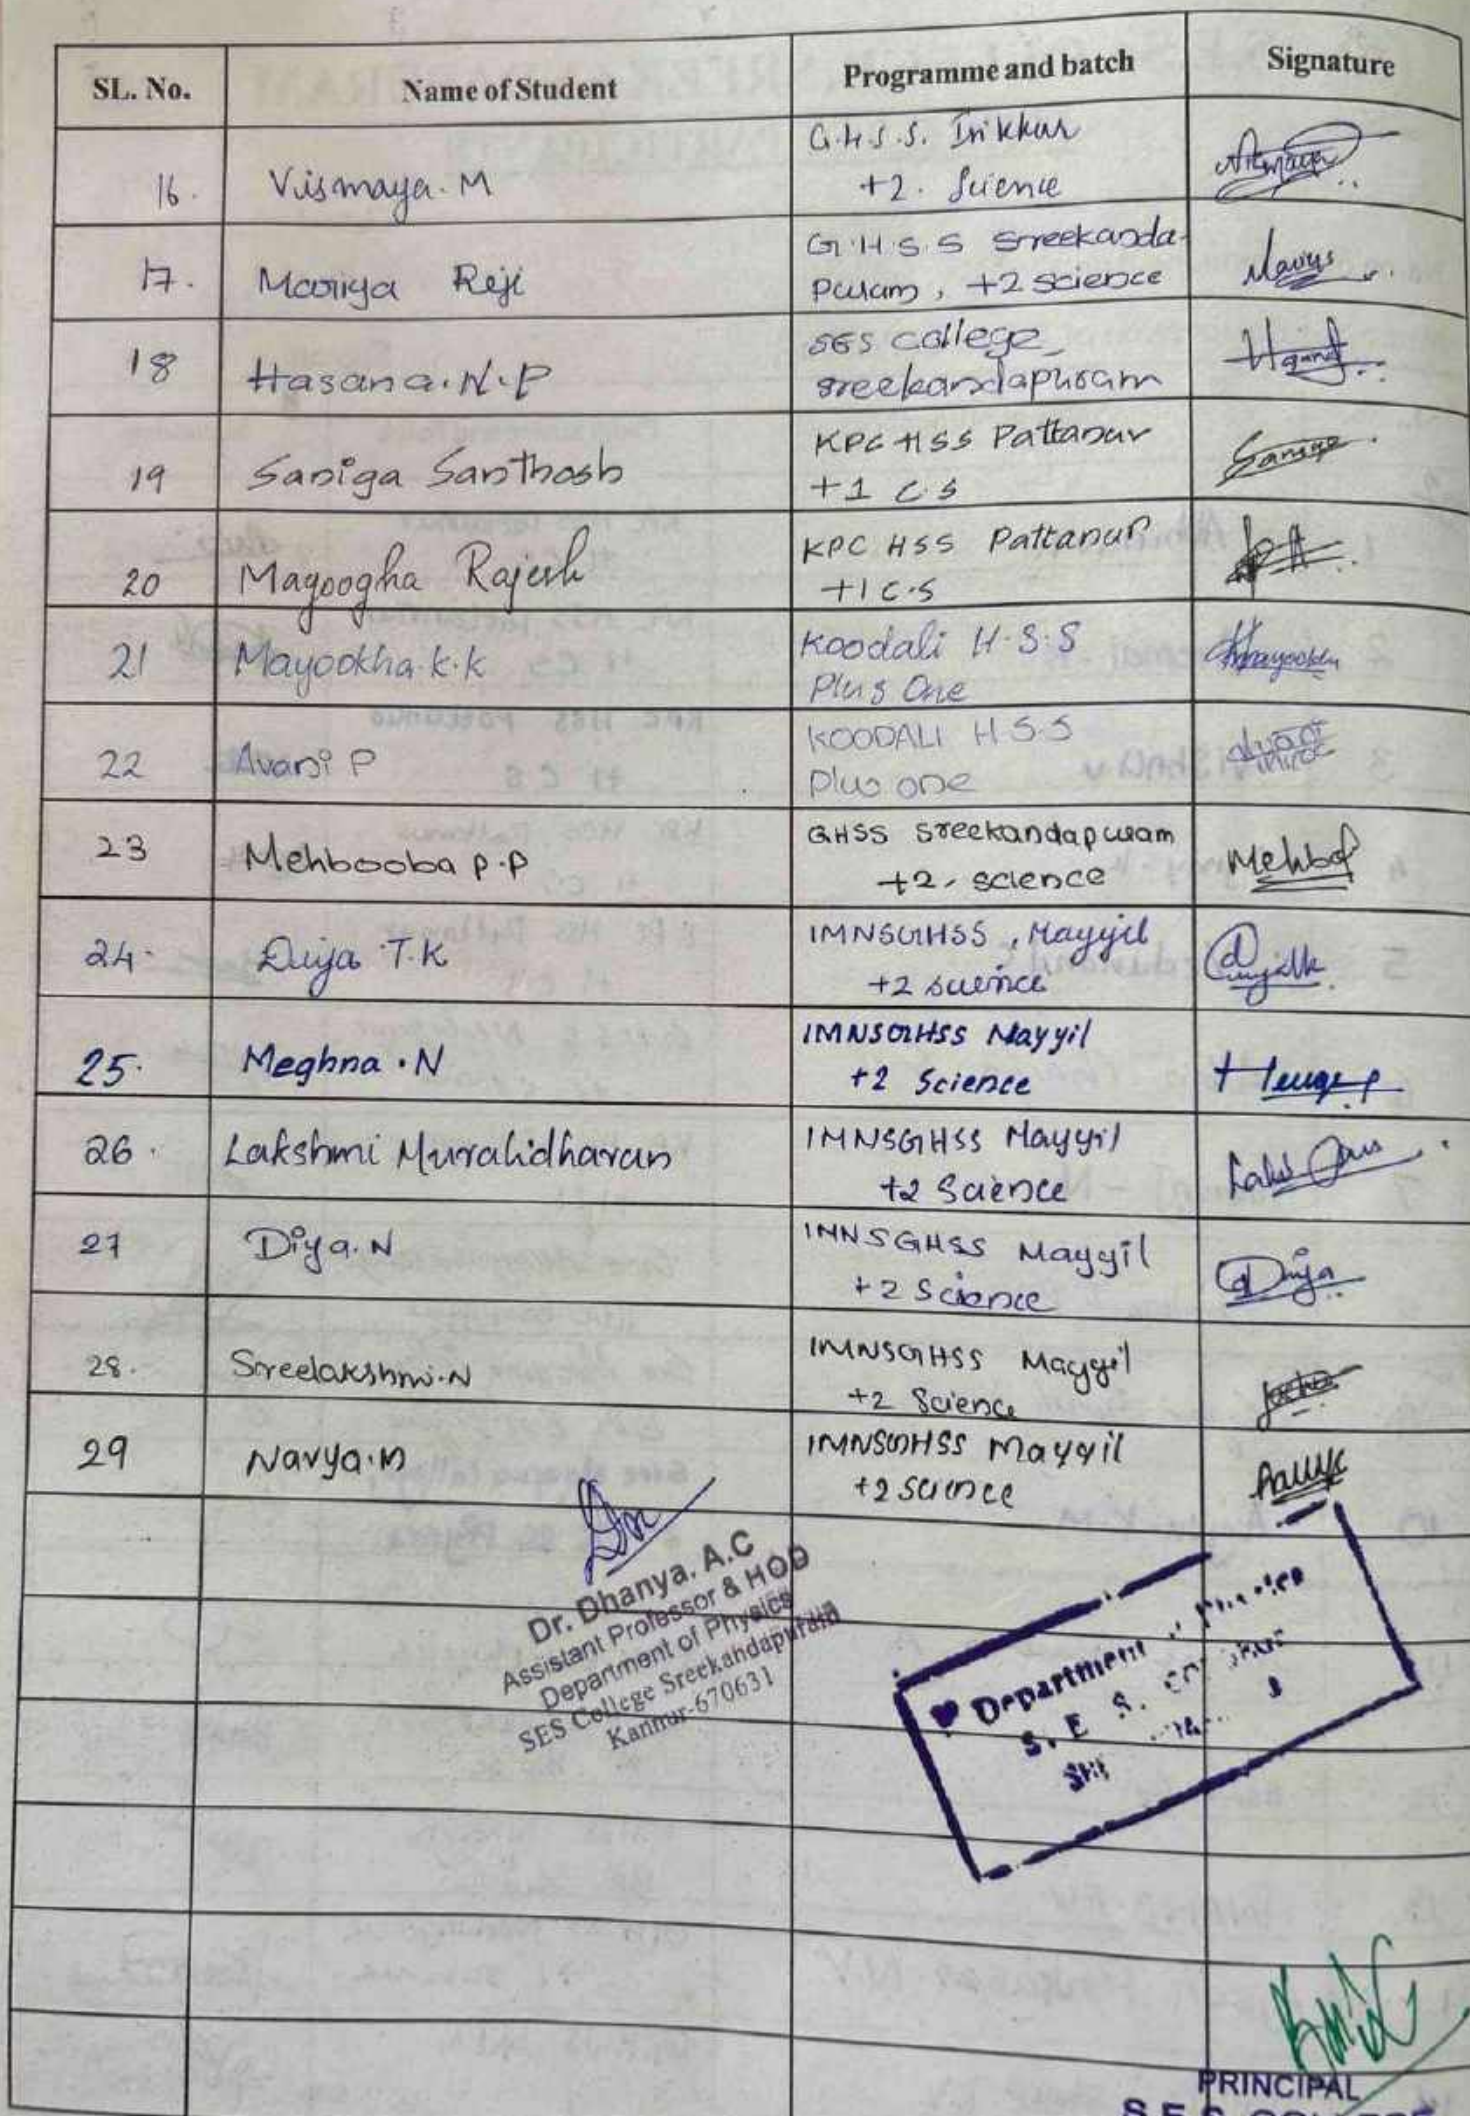 SL. No. Name of Student Programme and batch Signature
16. Vismaya. M G.H.S.S. Irikkur
+2. Science
17. Mariya Reji G.H.S.S Sreekanda-
puram, +2 science
18 Hasana.N.P SES college
sreekandapuram
19 Saniga Santhosh KPC HSS Pattanur
+1 C.S
20 Mayoogha Rajesh KPC HSS Pattanur
+1 C.S
21 Mayookha.k.k Koodali H.S.S
Plus One
22 Avani P KOODALI H S S
Plus one
23 Mehbooba P.P GHSS Sreekandapuram
+2, science
Mehbof
24. Diya T.K IMNSGHSS, Mayyil
+2 science
25. Meghna . N IMNSGHSS Mayyil
+2 Science
26. Lakshmi Muralidharan IMNSGHSS Mayyil
+2 Science
27 Diya. N IMNSGHSS Mayyil
+2 Science
Diya
28. Sreelakshmi.N IMNSGHSS Mayyil
+2 Science
29 Navya.M IMNSGHSS Mayyil
+2 Science
Dr. Dhanya. A.C
Assistant Professor & HOD
Department of Physics
SES College Sreekandapuram
Kannur-670631
Department
S. E. S.
PRINCIPAL
S.E.S. COLLEGE